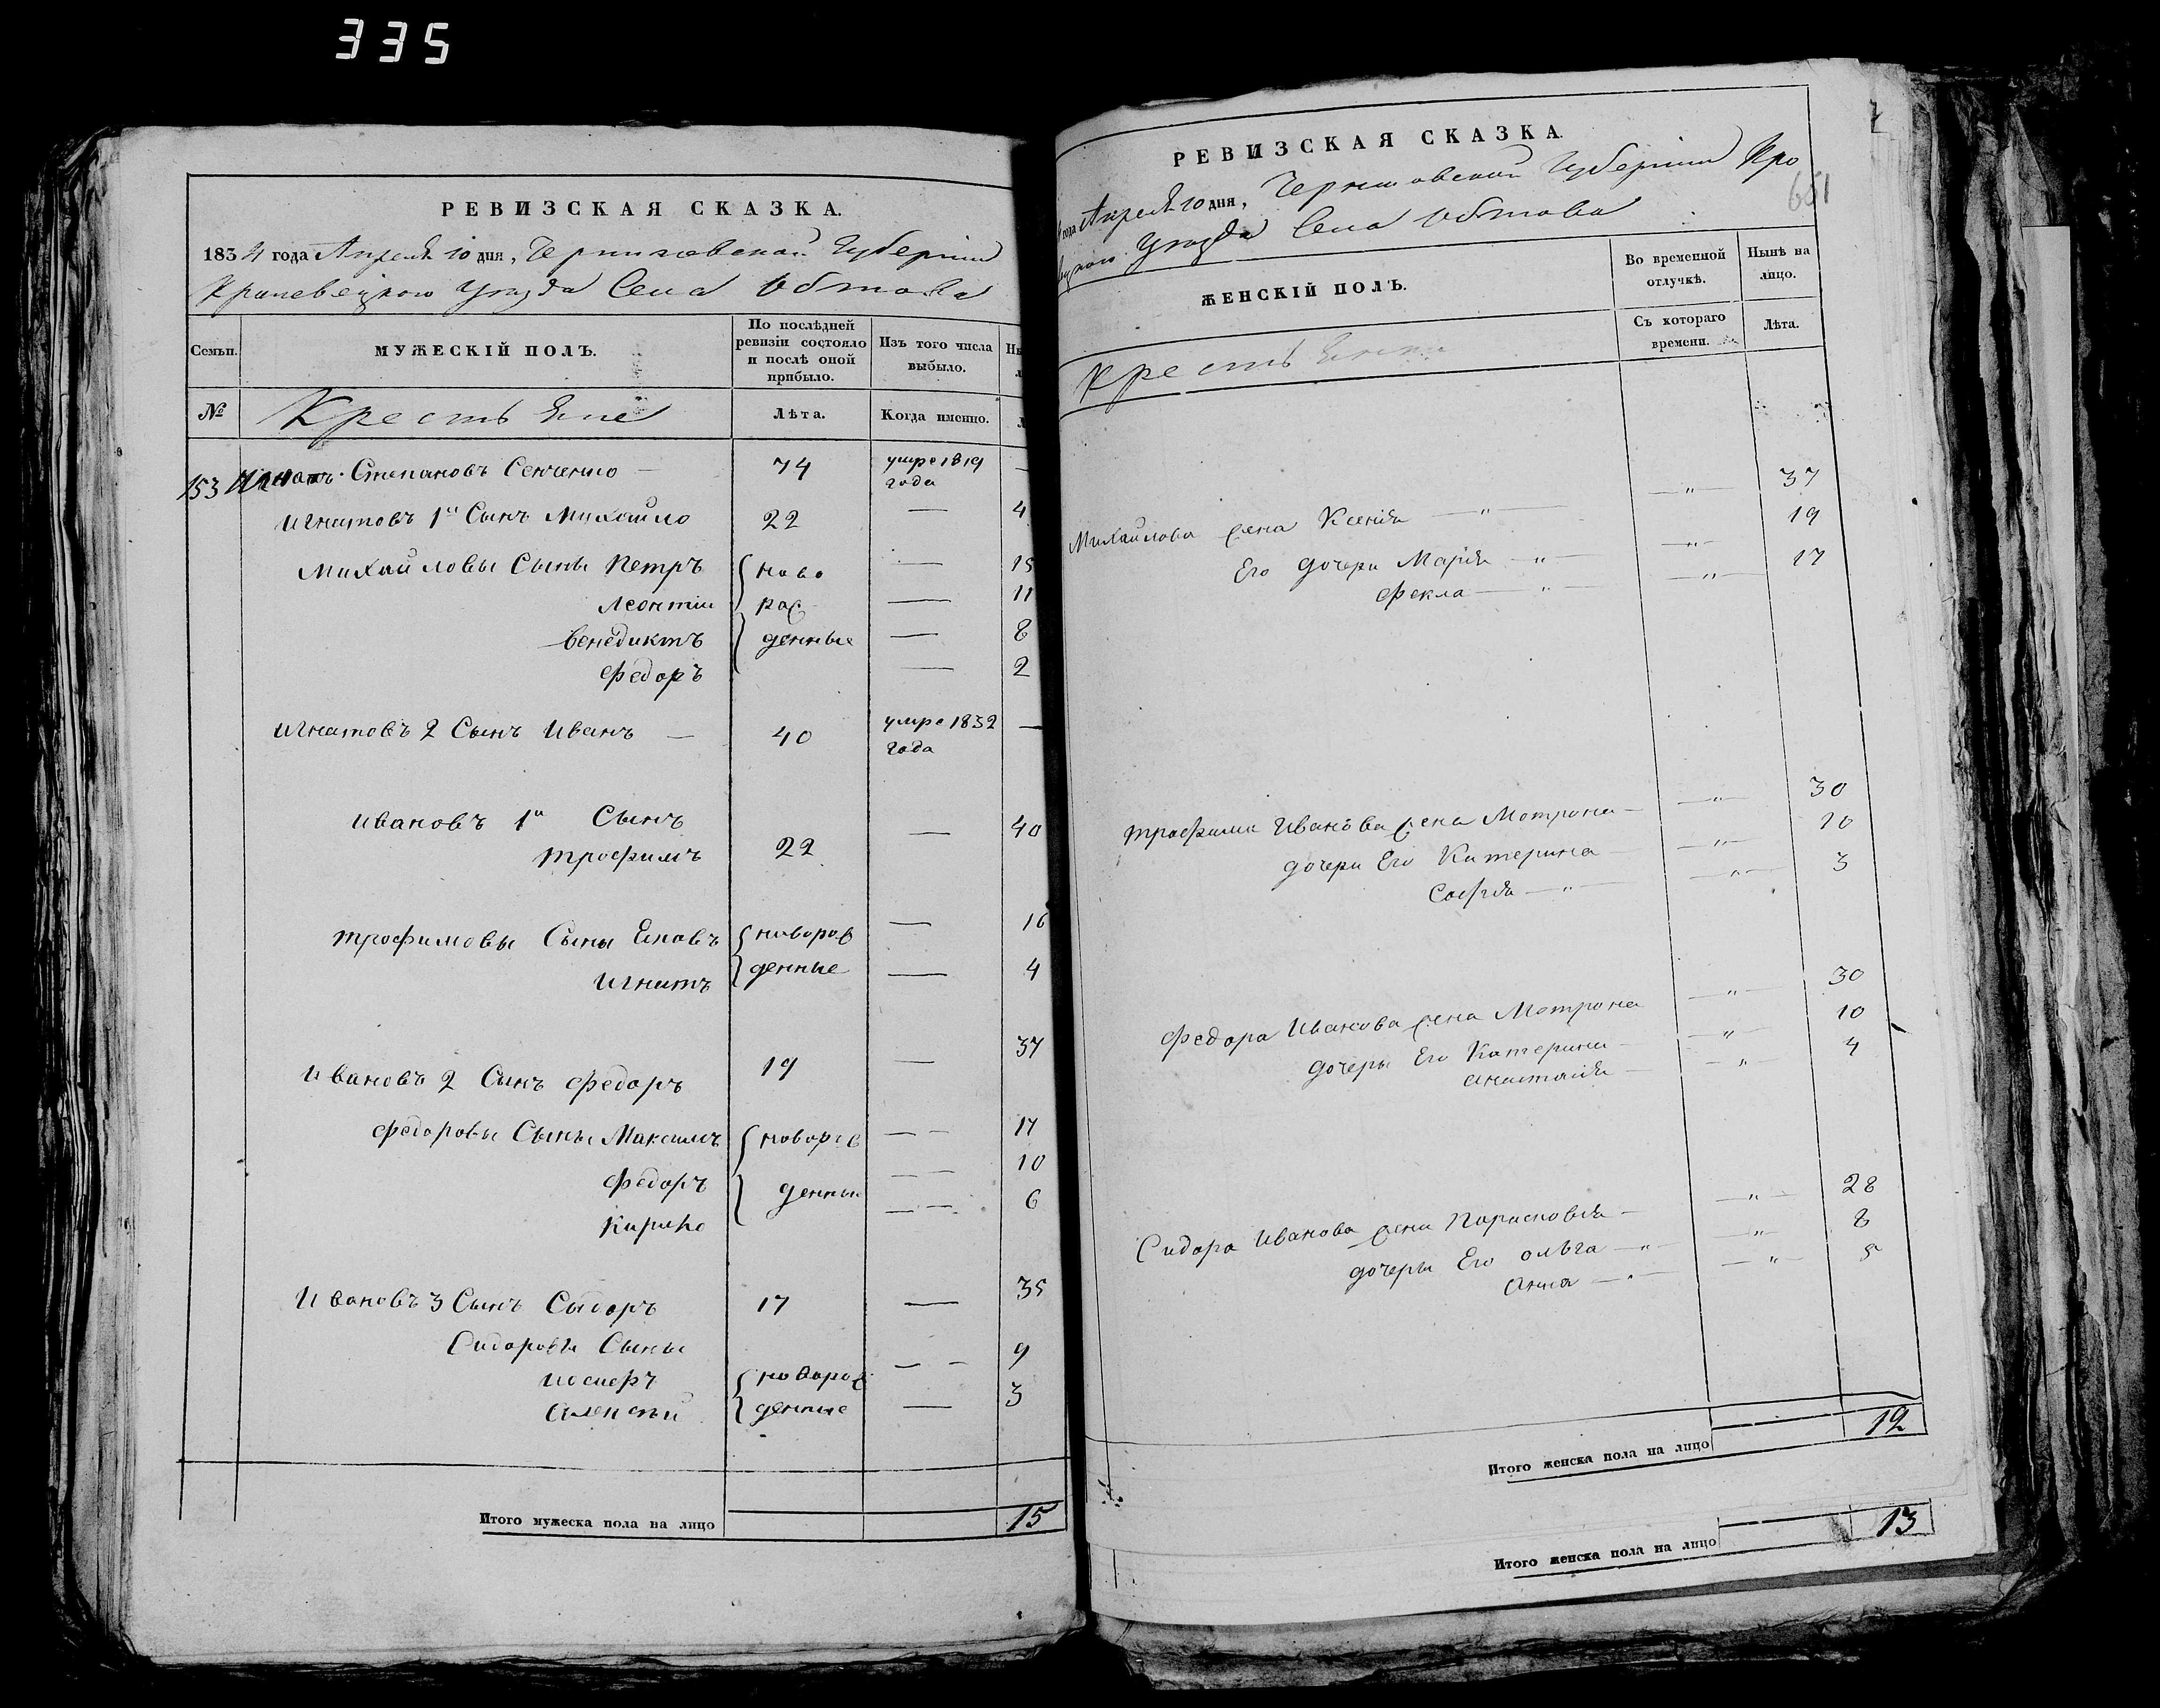 335
РЕВИЗСКАЯ СКАЗКА.
1834 года Апреля 10 дня, Черниговской Губернии
Кролевецкого Уезда Села Обтова
Семьи. МУЖЕСКІЙ ПОЛЪ. По послѣдней ревизіи состояло и послѣ оной прибыло. Изъ того числа выбыло.
№ Крестьяне Лѣта. Когда именно.
153 Игнатъ Степановъ Сенченко — 74 умре 1819 года —
Игнатовъ 1й Сынъ Михайло 22 — 4
Михайловы Сыны Петръ ново — 15
Леонтии рож — 11
Венедиктъ денные — 8
Федоръ — 2
Игнатовъ 2 Сынъ Иванъ — 40 умре 1832 года —
Ивановъ 1й Сынъ
Трофимъ 22 — 40
Трофимовы Сыны новорож — 16
Игнатъ денные — 4
Ивановъ 2 Сынъ Федоръ 19 — 37
Федоровы Сыны Максимъ новорож — 17
Федоръ денные — 10
Кирило — 6
Ивановъ 3 Сынъ Сидоръ 17 — 35
Сидоровы Сыны
Иосифъ новорож — 9
Алексѣй денные — 3
Итого мужеска пола на лицо 15
РЕВИЗСКАЯ СКАЗКА.
года Апреля 10 дня, Черниговской Губернии Кро
вецкого Уезда Села Обтова
651
ЖЕНСКІЙ ПОЛЪ. Во временной отлучкѣ. Нынѣ на лицо.
Крестьяне Съ котораго времени. Лѣта.
Михайлова жена Ксения — " — " — 37
Его дочери Мария — " — " — 19
Фекла — " — " — 17
Трофима Иванова жена Мотрона — " — 30
дочери Его Катерина — " — 10
София — " — " — 3
Федора Иванова жена Мотрона — " — 30
дочери Его Катерина — " 10
Анастасия — " — 4
Сидора Иванова жена Парасковия — " — 28
дочери Его Ольга — " — " — 8
Анна — " — " — 5
Итого женска пола на лицо 12
Итого женска пола на лицо 13